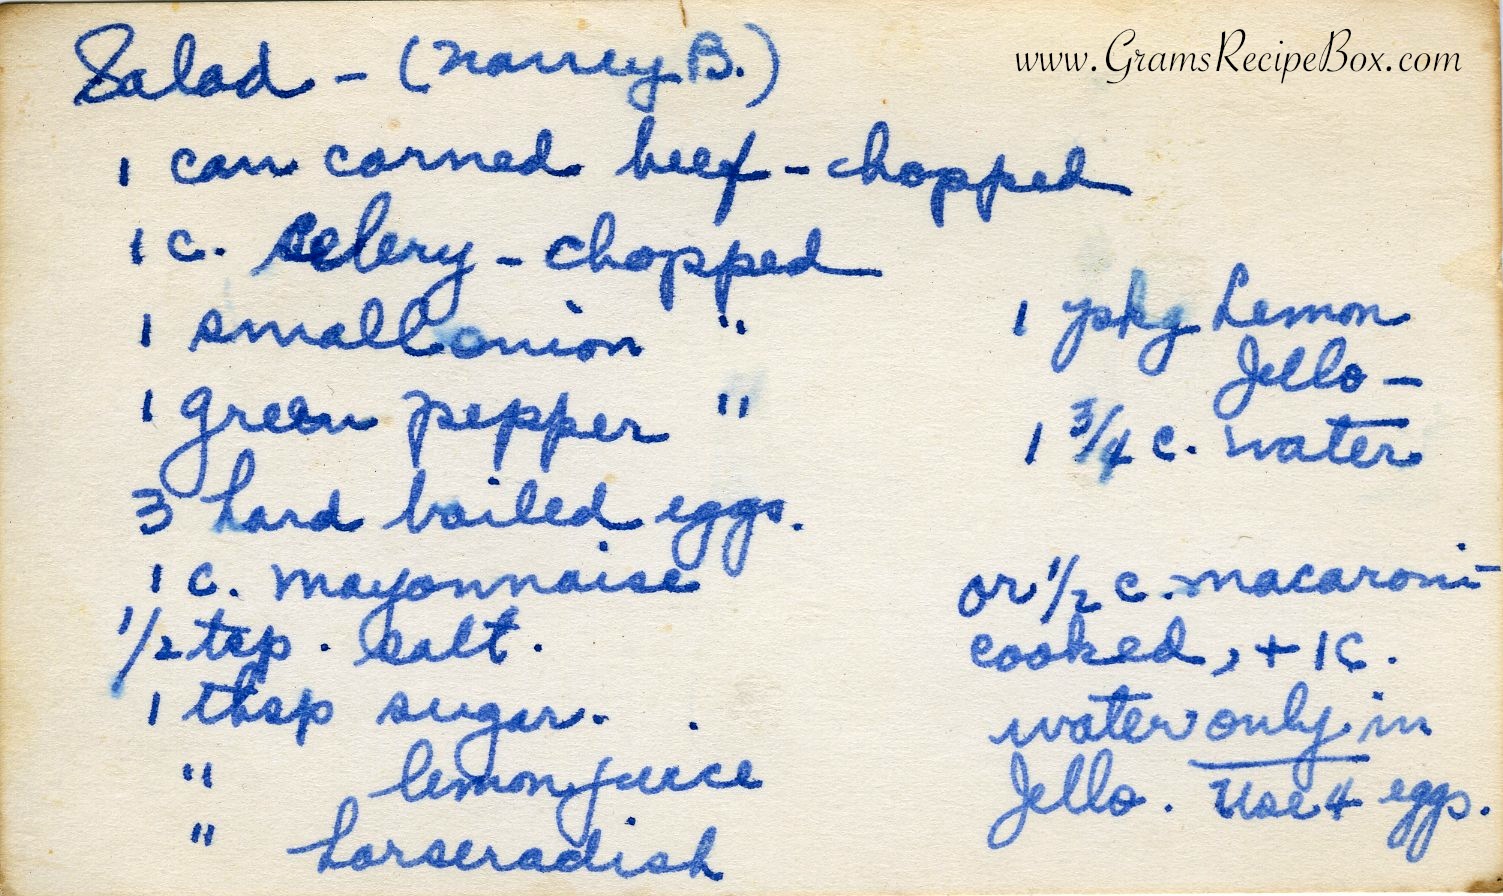 Salad - (Nancy B.)
www.GramsRecipeBox.com
1 can corned beef - chopped
1 c. celery - chopped
1 small onion "
1 green pepper "
3 hard boiled eggs.
1 c. mayonnaise
1/2 tsp. salt.
1 tbsp sugar.
" lemon juice
" horseradish
1 pkg Lemon
Jello -
1 3/4 c. water
or 1/2 c. macaroni
cooked, + 1 c.
water only in
Jello. Use 4 eggs.